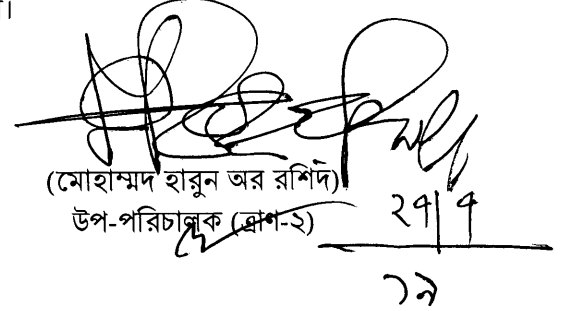 ।
(মোহাম্মদ হারুন অর রশিদ)
উপ-পরিচালক (ত্রাণ-২)
২৭|৭
১৯